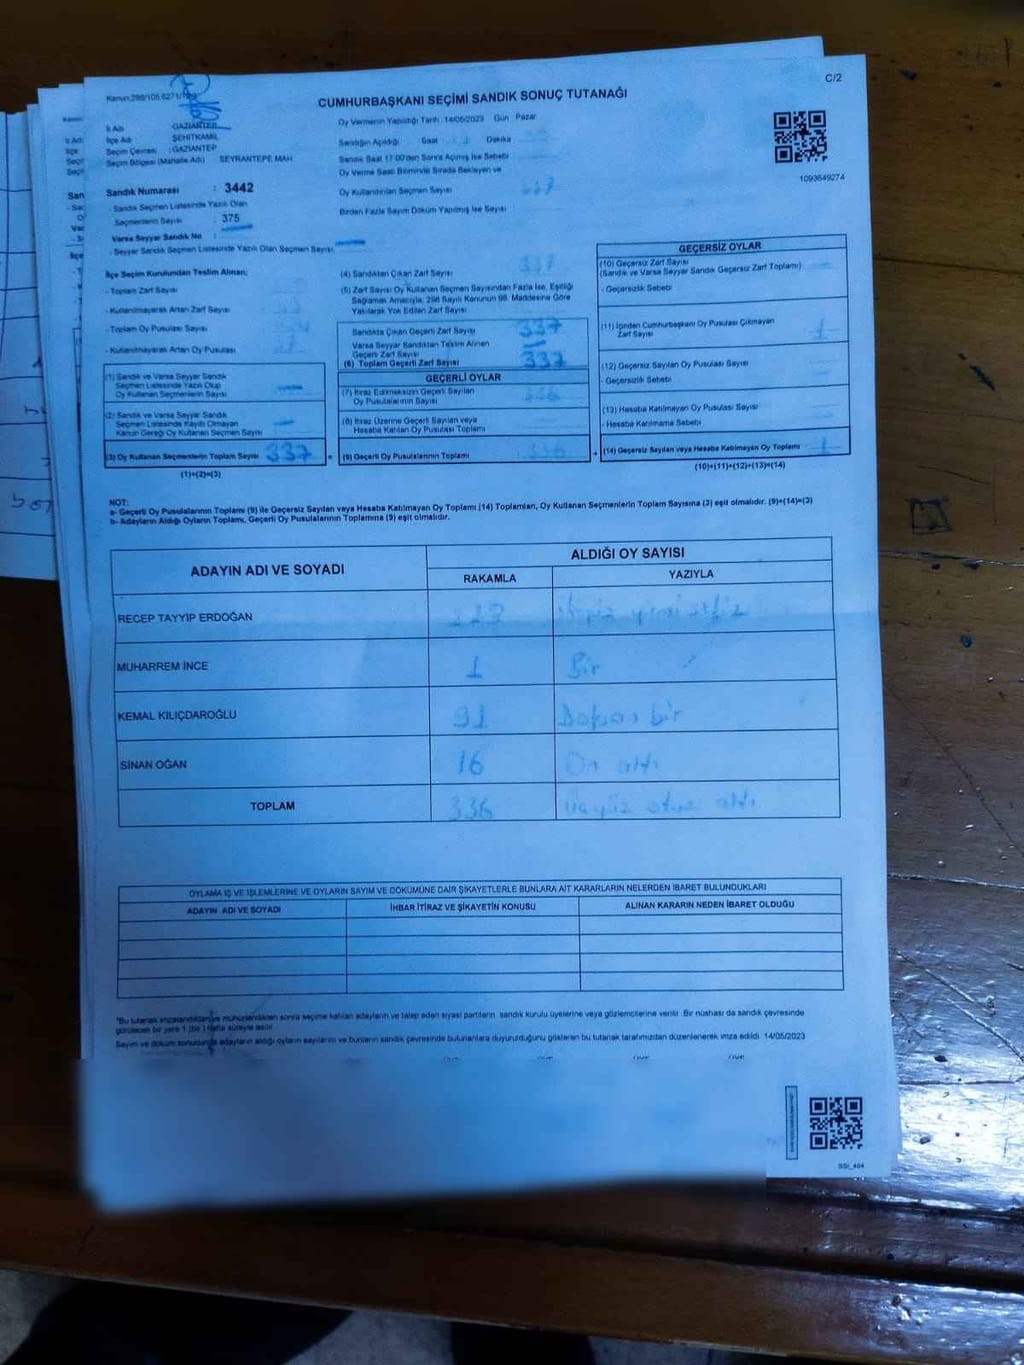 C/2
CUMHURBAŞKANI SEÇİMİ SANDIK SONUÇ TUTANAĞI
İl Adı GAZİANTEP
İlçe Adı ŞEHİTKAMİL
Seçim Çevresi :GAZİANTEP
Seçim Bölgesi (Mahalle Adı) SEYRANTEPE MAH.
Oy Vermenin Yapıldığı Tarih :14/05/2023 Gün Pazar
Sandığın Açıldığı Saat Dakika
Sandık Saat 17:00'den Sonra Açılmış İse Sebebi
Oy Verme Saati Bitiminde Sırada Bekleyen ve
Oy Kullandırılan Seçmen Sayısı 337
Birden Fazla Sayım Döküm Yapılmış İse Sayısı
1093649274
Sandık Numarası : 3442
- Sandık Seçmen Listesinde Yazılı Olan
Seçmenlerin Sayısı : 375
Varsa Seyyar Sandık No :
- Seyyar Sandık Seçmen Listesinde Yazılı Olan Seçmen Sayısı
İlçe Seçim Kurulundan Teslim Alınan;
- Toplam Zarf Sayısı
- Kullanılmayarak Artan Zarf Sayısı
- Toplam Oy Pusulası Sayısı
- Kullanılmayarak Artan Oy Pusulası
(1) Sandık ve Varsa Seyyar Sandık
Seçmen Listesinde Yazılı Olup
Oy Kullanan Seçmenlerin Sayısı
(2) Sandık ve Varsa Seyyar Sandık
Seçmen Listesinde Kayıtlı Olmayan
Kanun Gereği Oy Kullanan Seçmen Sayısı
(3) Oy Kullanan Seçmenlerin Toplam Sayısı 337
(1)+(2)=(3)
(4) Sandıktan Çıkan Zarf Sayısı 337
(5) Zarf Sayısı Oy Kullanan Seçmen Sayısından Fazla İse, Eşitliği
Sağlamak Amacıyla, 298 Sayılı Kanunun 98. Maddesine Göre
Yakılarak Yok Edilen Zarf Sayısı
Sandıkta Çıkan Geçerli Zarf Sayısı 337
Varsa Seyyar Sandıktan Teslim Alınan
Geçerli Zarf Sayısı
(6) Toplam Geçerli Zarf Sayısı 337
GEÇERLİ OYLAR
(7) İtiraz Edilmeksizin Geçerli Sayılan
Oy Pusulalarının Sayısı 336
(8) İtiraz Üzerine Geçerli Sayılan veya
Hesaba Katılan Oy Pusulası Toplamı
(9) Geçerli Oy Pusulalarının Toplamı 336
GEÇERSİZ OYLAR
(10) Geçersiz Zarf Sayısı
(Sandık ve Varsa Seyyar Sandık Geçersiz Zarf Toplamı)
- Geçersizlik Sebebi
(11) İçinden Cumhurbaşkanı Oy Pusulası Çıkmayan
Zarf Sayısı 1
(12) Geçersiz Sayılan Oy Pusulası Sayısı
- Geçersizlik Sebebi
(13) Hesaba Katılmayan Oy Pusulası Sayısı
- Hesaba Katılmama Sebebi
(14) Geçersiz Sayılan veya Hesaba Katılmayan Oy Toplamı 1
(10)+(11)+(12)+(13)=(14)
NOT:
a- Geçerli Oy Pusulalarının Toplamı (9) ile Geçersiz Sayılan veya Hesaba Katılmayan Oy Toplamı (14) Toplamları, Oy Kullanan Seçmenlerin Toplam Sayısına (3) eşit olmalıdır. (9)+(14)=(3)
b- Adayların Aldığı Oyların Toplamı, Geçerli Oy Pusulalarının Toplamına (9) eşit olmalıdır.
ADAYIN ADI VE SOYADI ALDIĞI OY SAYISI
RAKAMLA YAZIYLA
RECEP TAYYİP ERDOĞAN
MUHARREM İNCE 1 Bir
KEMAL KILIÇDAROĞLU 91 Doksan bir
SİNAN OĞAN 16 On altı
TOPLAM 336 Üçyüz otuz altı
OYLAMA İŞ VE İŞLEMLERİNE VE OYLARIN SAYIM VE DÖKÜMÜNE DAİR ŞİKAYETLERLE BUNLARA AİT KARARLARIN NELERDEN İBARET BULUNDUKLARI
ADAYIN ADI VE SOYADI İHBAR İTİRAZ VE ŞİKAYETİN KONUSU ALINAN KARARIN NEDEN İBARET OLDUĞU
*Bu tutanak imzalandıktan ve mühürlendikten sonra seçime katılan adayların ve talep eden siyasi partilerin sandık kurulu üyelerine veya gözlemcilerine verilir. Bir nüshası da sandık çevresinde
görülecek bir yere 1 (bir) hafta süreyle asılır.
Sayım ve döküm sonucunda adayların aldığı oyların sayılarını ve bunların sandık çevresinde bulunanlara duyurulduğunu gösteren bu tutanak tarafımızdan düzenlenerek imza edildi. 14/05/2023
SSİ_404